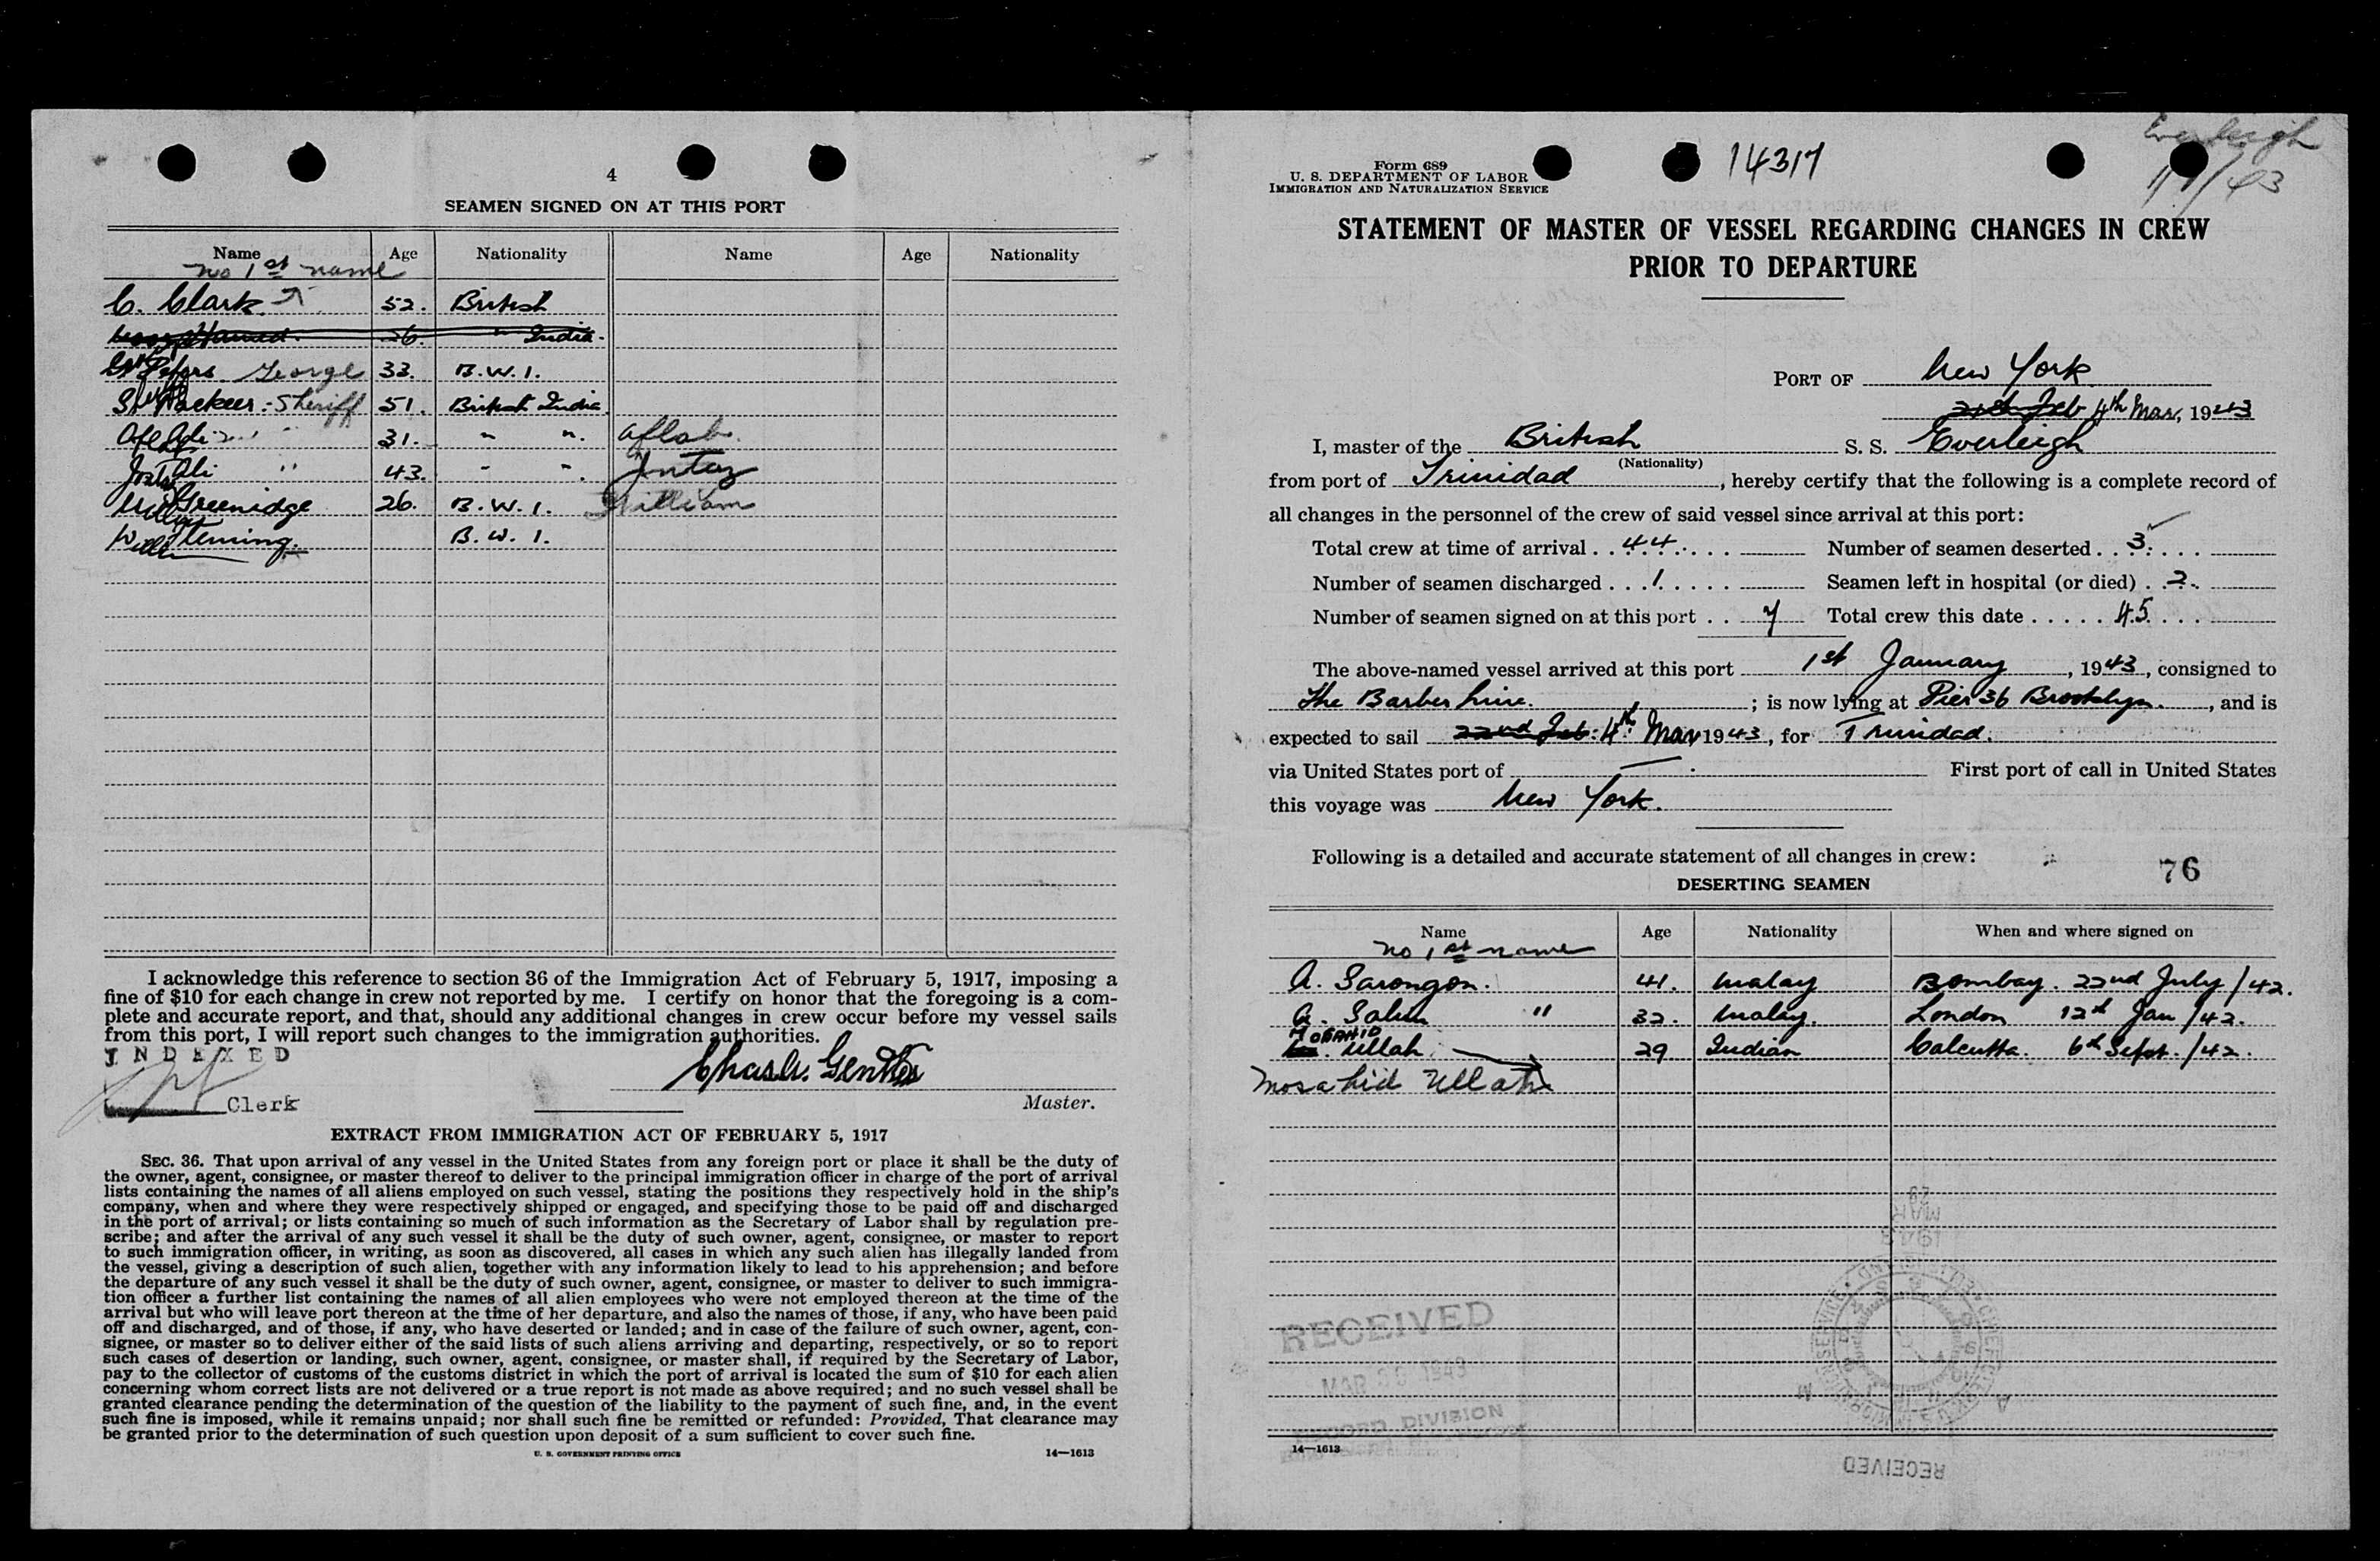 4
SEAMEN SIGNED ON AT THIS PORT
Name Age Nationality Name Age Nationality
no 1st name
C. Clark 52. British
26. " India.
Peters George 33. B.W.I.
Sheriff 51. British India
31. " " Aftab.
Ali " 43. " " Intaz
Greenidge 26. B.W.I. William
Fleming. B.W.I.
I acknowledge this reference to section 36 of the Immigration Act of February 5, 1917, imposing a
fine of $10 for each change in crew not reported by me. I certify on honor that the foregoing is a com-
plete and accurate report, and that, should any additional changes in crew occur before my vessel sails
from this port, I will report such changes to the immigration authorities.
INDEXED
Clerk
Master.
EXTRACT FROM IMMIGRATION ACT OF FEBRUARY 5, 1917
SEC. 36. That upon arrival of any vessel in the United States from any foreign port or place it shall be the duty of
the owner, agent, consignee, or master thereof to deliver to the principal immigration officer in charge of the port of arrival
lists containing the names of all aliens employed on such vessel, stating the positions they respectively hold in the ship's
company, when and where they were respectively shipped or engaged, and specifying those to be paid off and discharged
in the port of arrival; or lists containing so much of such information as the Secretary of Labor shall by regulation pre-
scribe; and after the arrival of any such vessel it shall be the duty of such owner, agent, consignee, or master to report
to such immigration officer, in writing, as soon as discovered, all cases in which any such alien has illegally landed from
the vessel, giving a description of such alien, together with any information likely to lead to his apprehension; and before
the departure of any such vessel it shall be the duty of such owner, agent, consignee, or master to deliver to such immigra-
tion officer a further list containing the names of all alien employees who were not employed thereon at the time of the
arrival but who will leave port thereon at the time of her departure, and also the names of those, if any, who have been paid
off and discharged, and of those, if any, who have deserted or landed; and in case of the failure of such owner, agent, con-
signee, or master so to deliver either of the said lists of such aliens arriving and departing, respectively, or so to report
such cases of desertion or landing, such owner, agent, consignee, or master shall, if required by the Secretary of Labor,
pay to the collector of customs of the customs district in which the port of arrival is located the sum of $10 for each alien
concerning whom correct lists are not delivered or a true report is not made as above required; and no such vessel shall be
granted clearance pending the determination of the question of the liability to the payment of such fine, and, in the event
such fine is imposed, while it remains unpaid; nor shall such fine be remitted or refunded: Provided, That clearance may
be granted prior to the determination of such question upon deposit of a sum sufficient to cover such fine.
U. S. GOVERNMENT PRINTING OFFICE 14—1613
Everleigh
1/1/43
14317
Form 689
U. S. DEPARTMENT OF LABOR
IMMIGRATION AND NATURALIZATION SERVICE
STATEMENT OF MASTER OF VESSEL REGARDING CHANGES IN CREW
PRIOR TO DEPARTURE
PORT OF New York
21st Feb 4th Mar, 1943
I, master of the British S. S. Everleigh
(Nationality)
from port of Trinidad, hereby certify that the following is a complete record of
all changes in the personnel of the crew of said vessel since arrival at this port:
Total crew at time of arrival . . 44 . . . . Number of seamen deserted . . 3. . . .
Number of seamen discharged . . . 1 . . . . . Seamen left in hospital (or died) . . 2. .
Number of seamen signed on at this port . . 7 Total crew this date . . . . . 45. . . .
The above-named vessel arrived at this port 1st January, 1943, consigned to
The Barber Line. ; is now lying at Pier 36 Brooklyn., and is
expected to sail 22nd Feb: 4th Mar 1943, for Trinidad.
via United States port of — . First port of call in United States
this voyage was New York.
Following is a detailed and accurate statement of all changes in crew:
76
DESERTING SEAMEN
Name Age Nationality When and where signed on
no 1st name
A. Sarongon. 41. Malay Bombay. 22nd July /42.
Salim " 32. Malay. London 12th Jan /42.
Ullah 29 Indian Calcutta. 6th Sept. /42.
Mosahid Ullah
MAR
1943
RECEIVED
MAR 1943
RECORD DIVISION
14—1613
RECEIVED